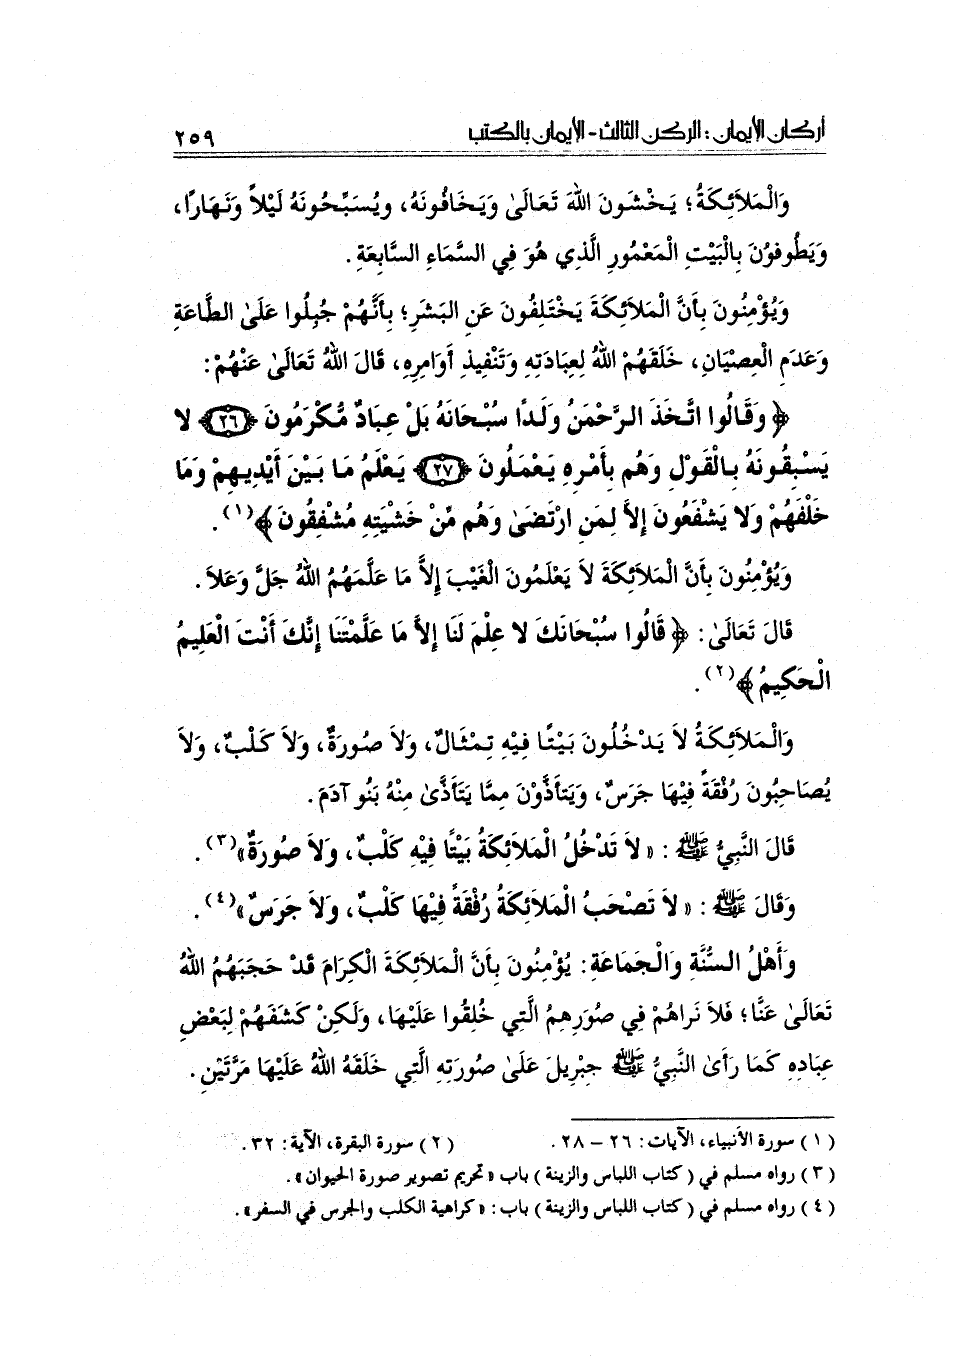 أركان الإيمان : الركن الثالث - الإيمان بالكتب ٢٥٩
وَالْمَلاَئِكَةُ؛ يَخْشَونَ اللهَ تَعَالَىٰ وَيَخَافُونَهُ، ويُسَبِّحُونَهُ لَيْلاً وَنَهَارًا،
وَيَطُوفوُنَ بِالْبَيْتِ الْمَعْمُورِ الَّذِي هُوَ فِي السَّمَاءِ السَّابِعَةِ .
وَيُؤْمِنُونَ بِأَنَّ الْمَلاَئِكَةَ يَخْتَلِفُونَ عَنِ البَشَرِ؛ بِأَنَّهُمْ جُبِلُوا عَلَىٰ الطَّاعَةِ
وَعَدَمِ الْعِصْيَانِ، خَلَقَهُمْ اللهُ لِعِبَادَتِهِ وَتَنْفِيذِ أَوَامِرِهِ، قَالَ اللهُ تَعَالَىٰ عَنْهُمْ :
﴿ وَقَالُوا اتَّخَذَ الرَّحْمَنُ وَلَدًا سُبْحَانَهُ بَلْ عِبَادٌ مُّكْرَمُونَ ﴿٢٦﴾ لا
يَسْبِقُونَهُ بِالْقَوْلِ وَهُم بِأَمْرِهِ يَعْمَلُونَ ﴿٢٧﴾ يَعْلَمُ مَا بَيْنَ أَيْدِيهِمْ وَمَا
خَلْفَهُمْ وَلا يَشْفَعُونَ إِلاَّ لِمَنِ ارْتَضَىٰ وَهُم مِّنْ خَشْيَتِهِ مُشْفِقُونَ ﴾(١) .
وَيُؤْمِنُونَ بِأَنَّ الْمَلاَئِكَةَ لاَ يَعْلَمُونَ الْغَيْبَ إِلاَّ مَا عَلَّمَهُمُ اللهُ جَلَّ وَعَلاَ .
قَالَ تَعَالَىٰ : ﴿ قَالُوا سُبْحَانَكَ لا عِلْمَ لَنَا إِلاَّ مَا عَلَّمْتَنَا إِنَّكَ أَنْتَ الْعَلِيمُ
الْحَكِيمُ ﴾(٢) .
وَالْمَلاَئِكَةُ لاَ يَدْخُلُونَ بَيْتًا فِيْهِ تِمْثَالٌ، وَلاَ صُورَةٌ، وَلاَ كَلْبٌ، وَلاَ
يُصَاحِبُونَ رُفْقَةً فِيْهَا جَرَسٌ، وَيَتأَذَّوْنَ مِمَّا يَتَأَذَّىٰ مِنْهُ بَنُو آدَمَ .
قَالَ النَّبِيُّ ﷺ : « لاَ تَدْخُلُ الْمَلاَئِكَةُ بَيْتًا فِيْهِ كَلْبٌ، وَلاَ صُورَةٌ»(٣) .
وَقَالَ ﷺ : « لاَ تَصْحَبُ الْمَلاَئِكَةُ رُفْقَةً فِيْهَا كَلْبٌ، وَلاَ جَرَسٌ»(٤) .
وَأَهْلُ السُّنَّةِ وَالْجَمَاعَةِ : يُؤْمِنُونَ بِأَنَّ الْمَلاَئِكَةَ الْكِرَامَ قَدْ حَجَبَهُمُ اللهُ
تَعَالَىٰ عَنَّا؛ فَلاَ نَرَاهُمْ فِي صُوَرِهِمُ الَّتِي خُلِقُوا عَلَيْهَا، وَلَكِنْ كَشَفَهُمْ لِبَعْضِ
عِبَادِهِ كَمَا رَأَىٰ النَّبِيُّ ﷺ جِبْرِيلَ عَلَىٰ صُورَتِهِ الَّتِي خَلَقَهُ اللهُ عَلَيْهَا مَرَّتَيْنِ .
( ١ ) سورة الأنبياء، الآيات : ٢٦ – ٢٨ . ( ٢ ) سورة البقرة، الآية : ٣٢ .
( ٣ ) رواه مسلم في ( كتاب اللباس والزينة ) باب « تحريم تصوير صورة الحيوان » .
( ٤ ) رواه مسلم في ( كتاب اللباس والزينة ) باب : « كراهية الكلب والجرس في السفر » .